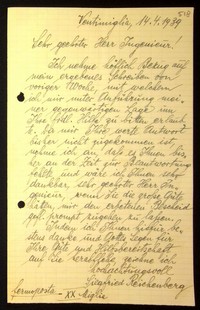 Ventimiglia, 14.4.1939
Sehr geehrter Herr Ingenieur.
Ich nehme höflich Bezug auf
mein ergebenes Schreiben von
voriger Woche, mit welchem
ich mir unter Anführung mei-
ner gegenwärtigen Lage um
Ihre Hilfe zu bitten erlaub-
te. Da mir Ihre werte Antwort
bisher nicht zugekommen ist,
nehme ich an, daß es Ihnen bis-
her an der Zeit zur Beantwortung
fehlte, und wäre ich Ihnen sehr
dankbar, sehr geehrter Herr In-
genieur, wenn Sie die große Güte
hätten, mir den erbetenen Bescheid
gefl. prompt zugehen zu lassen.
Indem ich Ihnen hiefür be-
stens danke und Gottes Segen für
Ihre Güte und Hilfsbereitschaft
auf Sie zeichne ich
hochachtungsvoll
Siegfried Reichenberg
fermoposta
XX Miglia